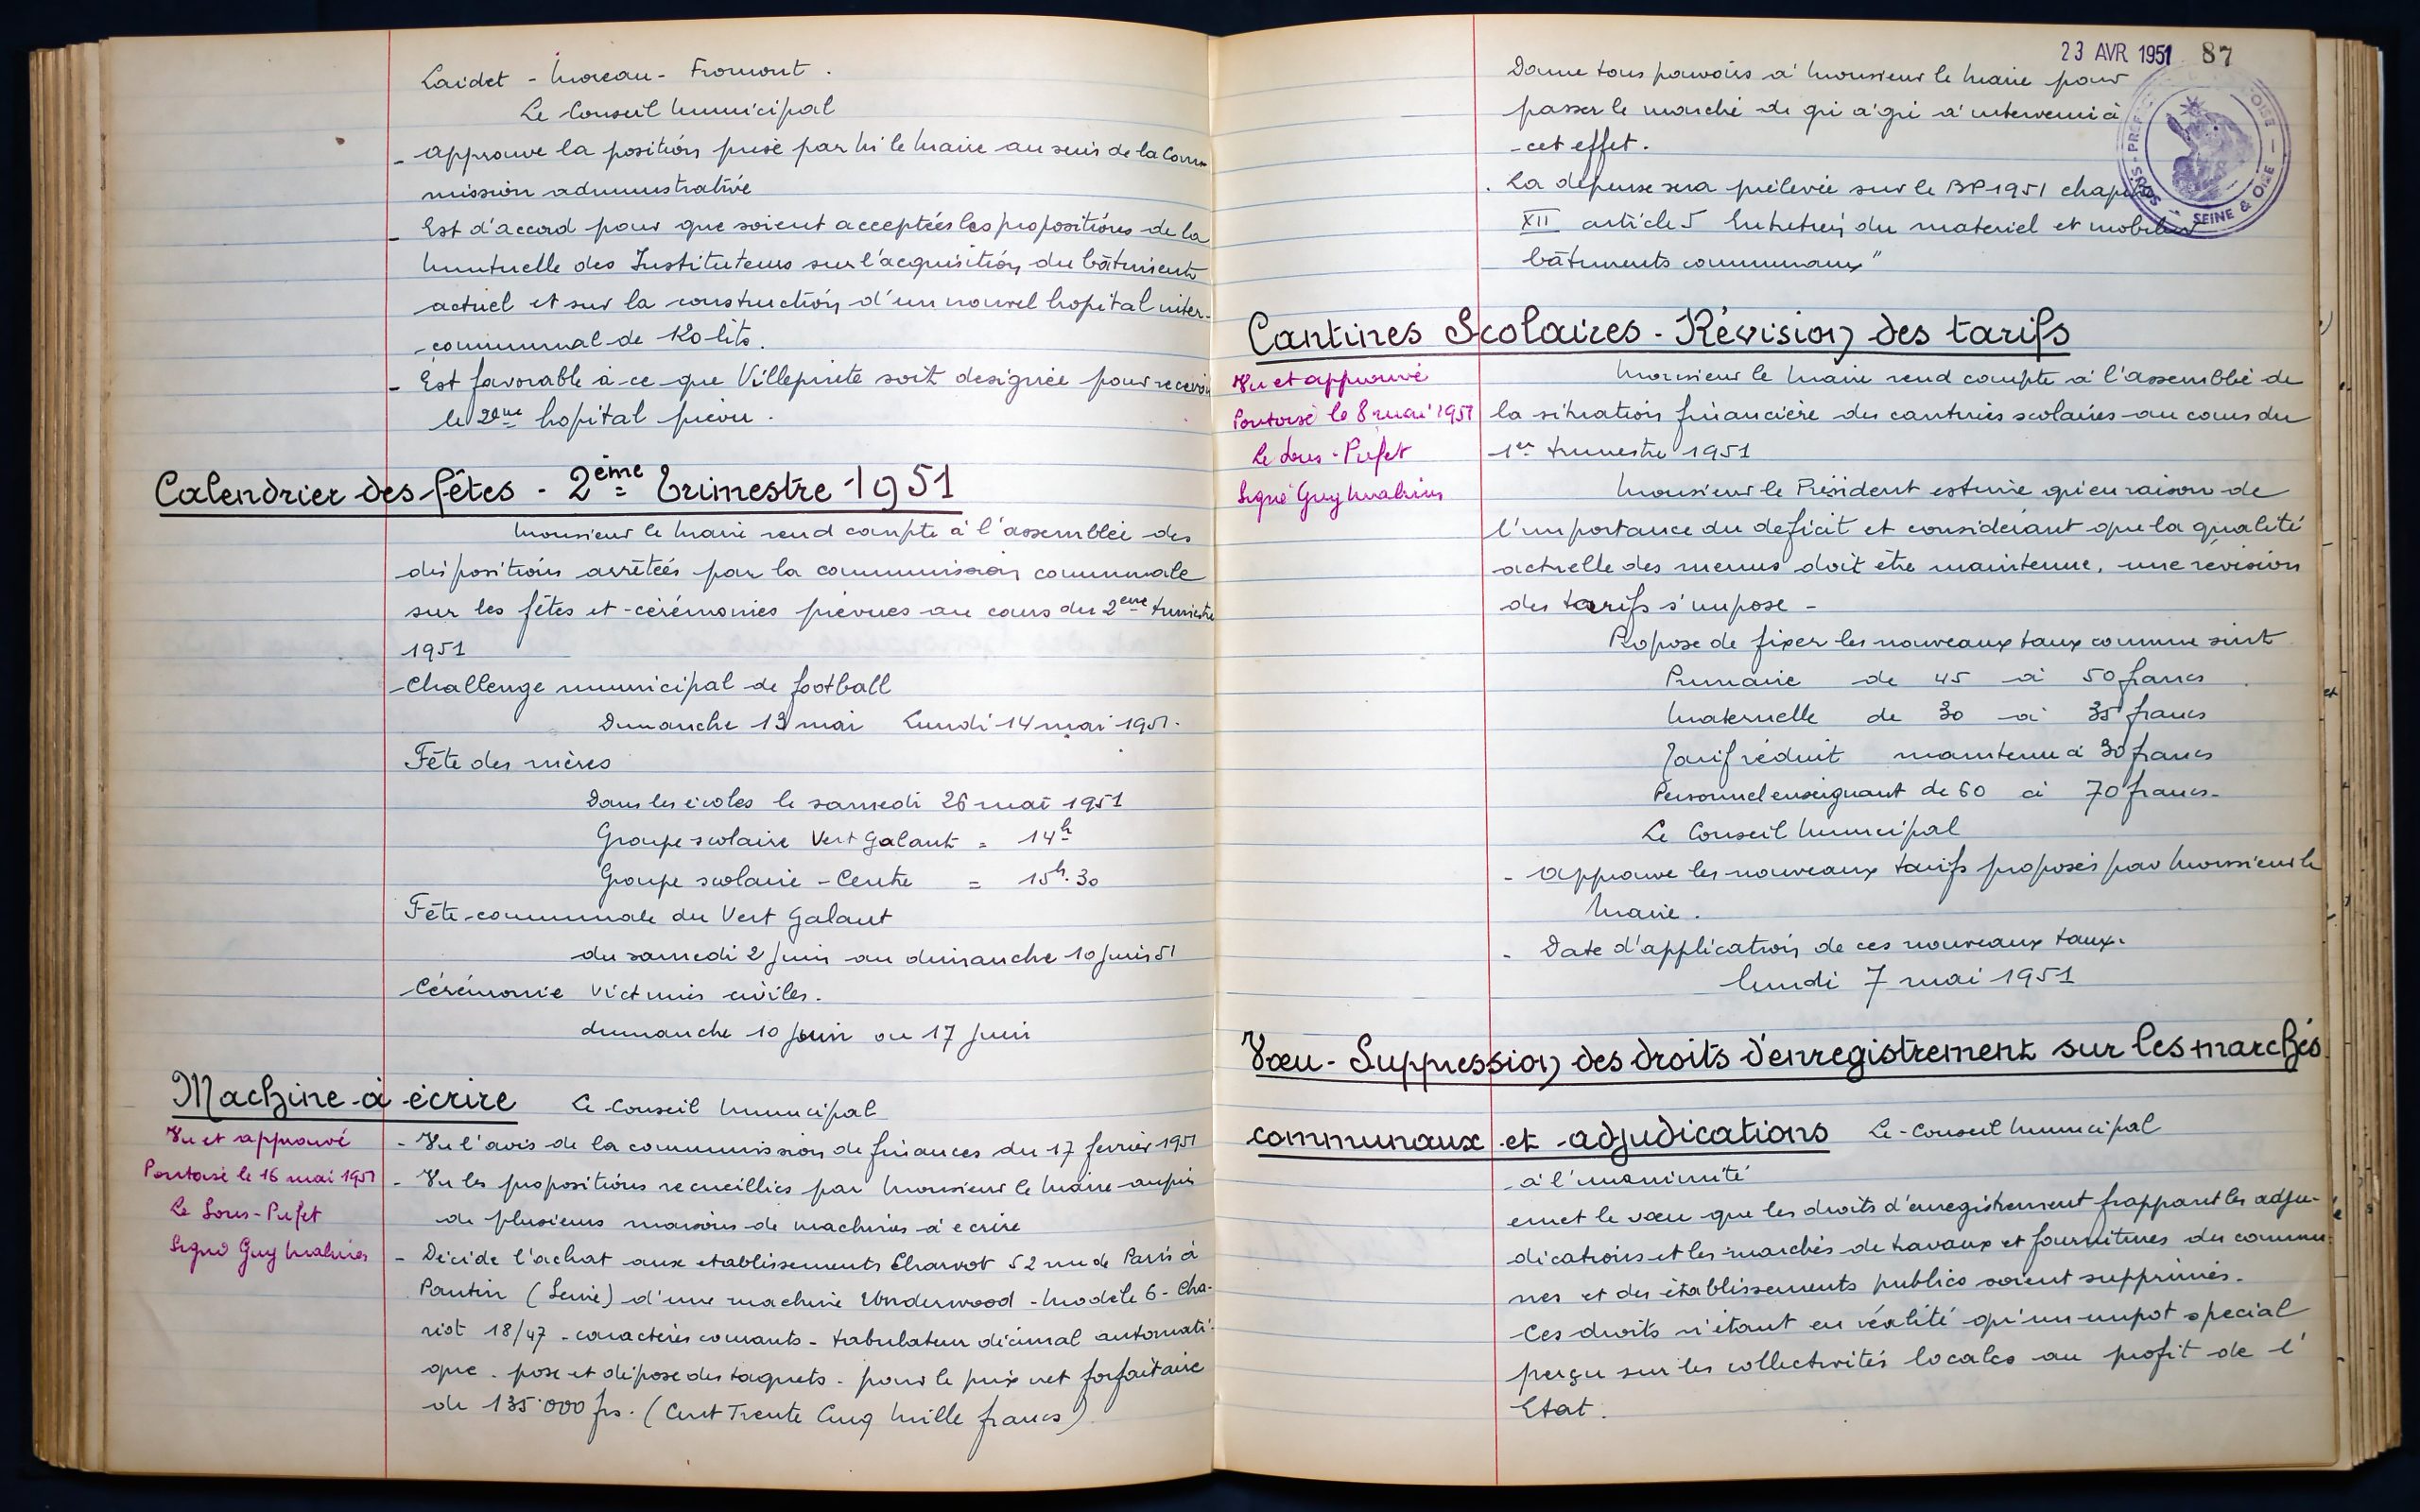 Laidet - Moreau - Fromont.
Le Conseil Municipal
- Approuve la position prise par Mr le Maire au sein de la Com-
mission administrative
- Est d'accord pour que soient acceptées les propositions de la
Mutuelle des Instituteurs sur l'acquisition du bâtiment
actuel et sur la construction d'un nouvel hopital inter-
communal de 120 lits.
- Est favorable à ce que Villepinte soit designée pour recevoir
le 2ème hopital prévu.
Calendrier des fêtes - 2ème trimestre 1951
Monsieur le Maire rend compte à l'assemblée des
dispositions arrêtées par la commission communale
sur les fêtes et cérémonies prévues au cours du 2ème trimestre
1951
Challenge municipal de football
Dimanche 13 mai Lundi 14 mai 1951.
Fête des mères
Dans les écoles le samedi 26 mai 1951
Groupe scolaire Vert Galant = 14h
Groupe scolaire - Centre = 15h.30
Fête communale du Vert Galant
du samedi 2 Juin au dimanche 10 Juin 51
Cérémonie Victimes civiles.
dimanche 10 Juin ou 17 Juin
Machine à écrire Le Conseil Municipal
Vu et approuvé
Pontoise le 16 mai 1951
Le Sous-Préfet
Signé Guy
- Vu l'avis de la commission de finances du 17 fevrier 1951
- Vu les propositions recueillies par Monsieur le Maire auprès
de plusieurs maisons de machines à ecrire
- Décide l'achat aux etablissements Charvot 52 rue de Paris à
Pantin (Seine) d'une machine Underwood - Modèle 6 - Cha-
riot 18/47 - caractères courants - tabulateur décimal automati-
que - pose et dépose des taquets - pour le prix net forfaitaire
de 135.000 frs. (Cent Trente Cinq Mille francs)
23 AVR 1951 87
Donne tous pouvoirs à Monsieur le Maire pour
passer le marché de gré à gré à intervenir à
cet effet.
. La dépense sera prélevée sur le BP 1951 chapitre
XII article 5 Entretien du materiel et mobilier
bâtiments communaux"
SEINE & OISE
Cantines Scolaires - Révision des tarifs
Vu et approuvé
Pontoise le 8 mai 1951
Le Sous-Préfet
Signé Guy
Monsieur le Maire rend compte à l'assemblée de
la situation financière des cantines scolaires au cours du
1er trimestre 1951
Monsieur le Président estime qu'en raison de
l'importance du deficit et considérant que la qualité
actuelle des menus doit être maintenue, une révision
des tarifs s'impose -
Propose de fixer les nouveaux taux comme suit
Primaire de 45 à 50 francs
Maternelle de 30 à 35 francs
Tarif réduit maintenu à 30 francs
Personnel enseignant de 60 à 70 francs-
Le Conseil Municipal
- Approuve les nouveaux tarifs proposés par Monsieur le
Maire.
- Date d'application de ces nouveaux taux.
lundi 7 mai 1951
Vœu - Suppression des droits d'enregistrement sur les marchés
communaux et adjudications Le Conseil Municipal
à l'unanimité
emet le vœu que les droits d'enregistrement frappant les adju-
dications et les marchés de travaux et fournitures des commu-
nes et des établissements publics soient supprimés.
Ces droits n'étant en réalité qu'un impot special
perçu sur les collectivités locales au profit de l'
Etat.